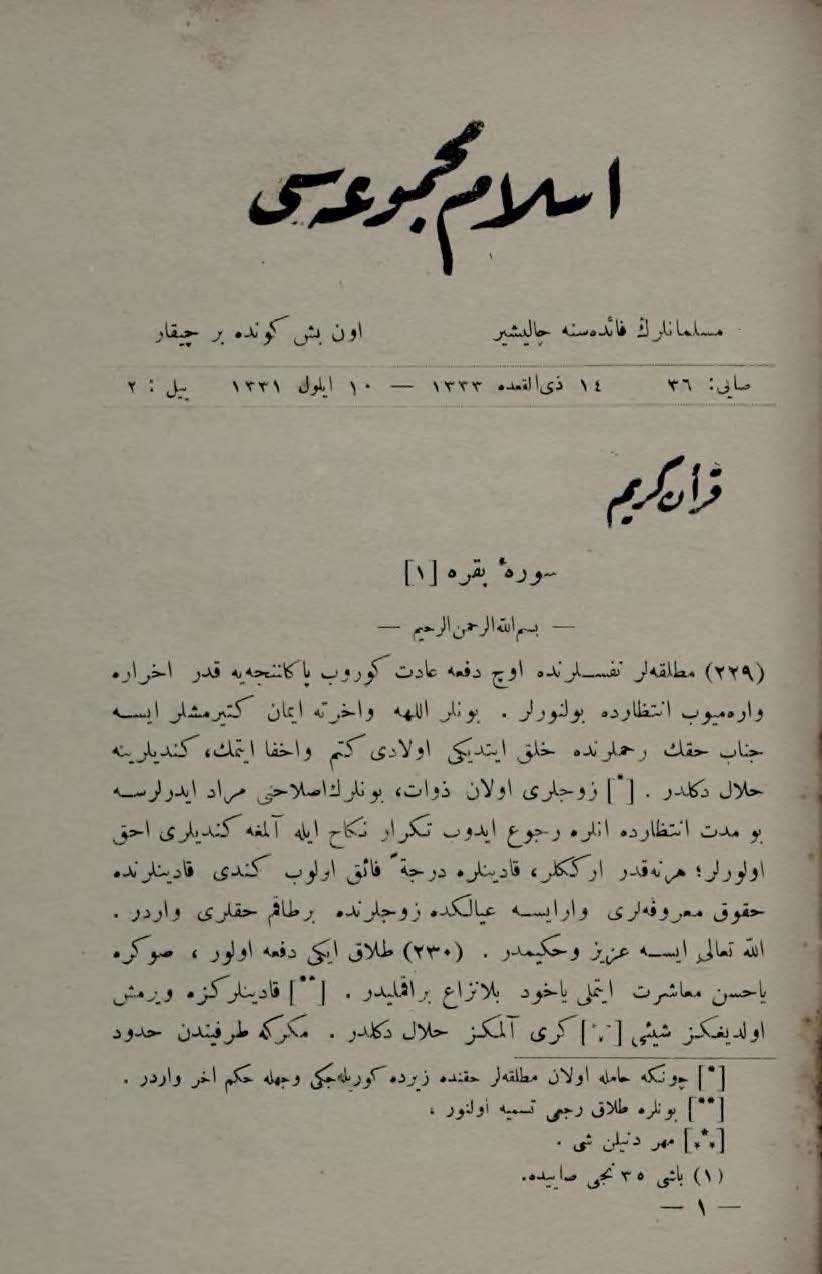 اسلام مجموعه‌سی
مسلمانلرك فائده‌سنه چالیشیر
اون بش كونده بر چیقار
صایی: ٣٦ ١٤ ذی‌القعده ١٣٣٣ — ١٠ ایلول ١٣٣١ ییل : ٢
قرأن كریم
سورهٔ بقره [١]
— بسم‌الله‌الرحمن‌الرحیم —
(٢٢٩) مطلقه‌لر نفسلرنده اوچ دفعه عادت كوروب پاكاننجه‌یه قدر اخراره
واره‌میوب انتظارده بولنورلر . بونلر اللهه واخرته ایمان كتیرمشلر ایسه
جناب حقك رحملرنده خلق ایتدیكی اولادی كتم واخفا ایتمك، كندیلرینه
حلال دكلدر . [*] زوجلری اولان ذوات، بونلرك‌اصلاحنی مراد ایدرلرسه
بو مدت انتظارده انلره رجوع ایدوب تكرار نكاح ایله آلمغه كندیلری احق
اولورلر؛ هرنه‌قدر ارككلر، قادینلره درجةً فائق اولوب كندی قادینلرنده
حقوق معروفه‌لری وارایسه عیالكده زوجلرنده برطاقم حقلری واردر .
الله تعالی ایسه عزیز وحكیمدر . (٢٣٠) طلاق ایكی دفعه اولور ، صوكره
یاحسن معاشرت ایتملی یاخود بلانزاع براقملیدر . [**] قادینلركزه ویرمش
اولدیغكز شیئی [*٭*] كری آلمكز حلال دكلدر . مكركه طرفیندن حدود
[*] چونكه حامله اولان مطلقه‌لر حقنده زیرده كوریله‌جكی وجهله حكم اخر واردر .
[**] بونلره طلاق رجعی تسمیه اولنور .
[*٭*] مهر دنیلن شی .
(١) باشی ٣٥ نجی صاییده.
— ١ —